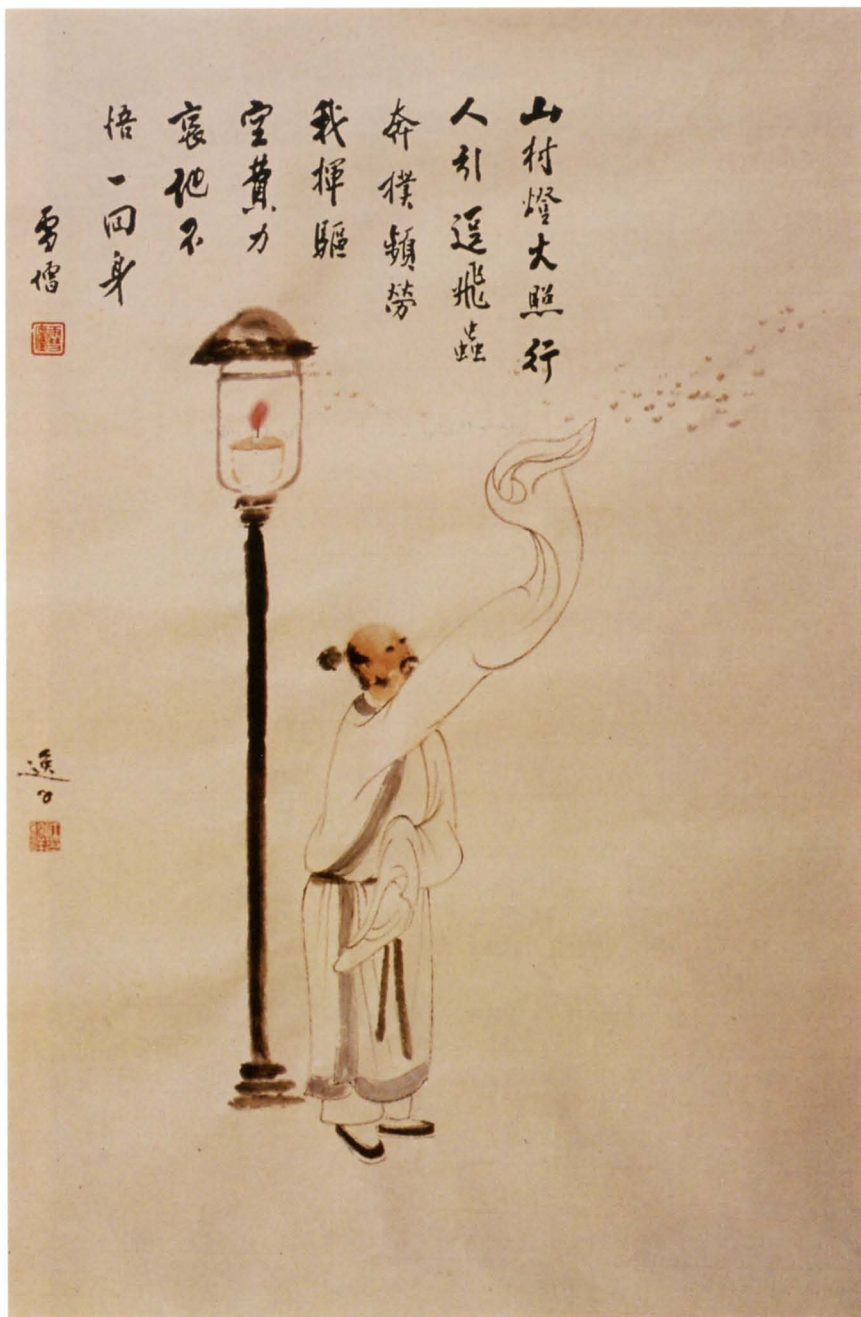 山村燈火照行
人引逗飛蟲
奔撲頻勞
我揮驅
空費力
哀他不
悟一囘身
雪僧